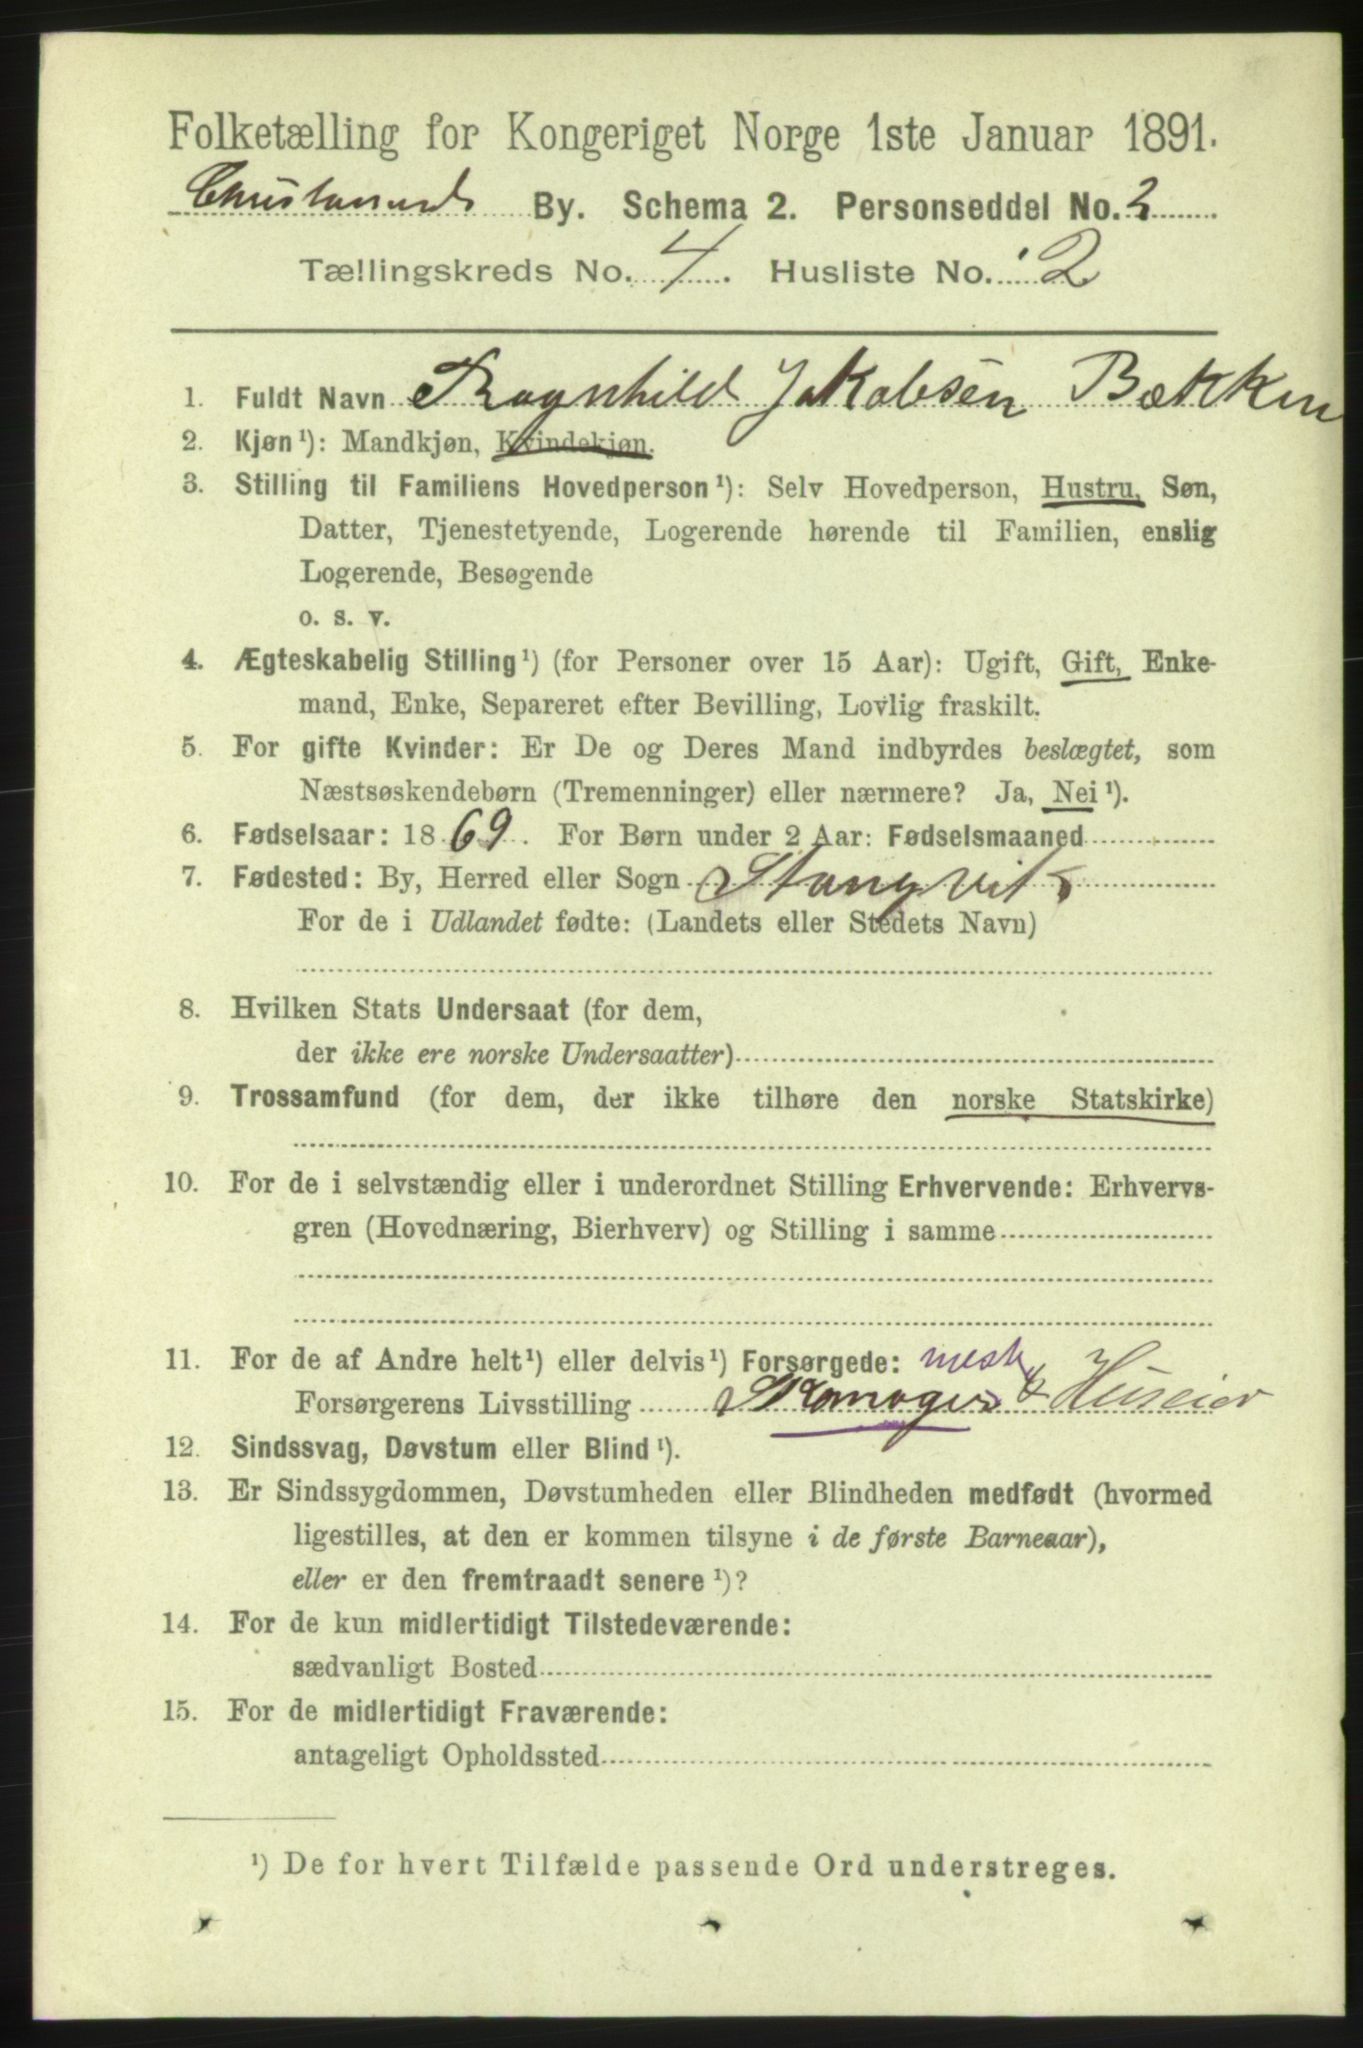 Folketælling for Kongeriget Norge 1ste Januar 1891.
Christiansund By. Schema 2. Personseddel No. 2
Tællingskreds No. 4. Husliste No. 2
1. Fuldt Navn Ragnhild Jakobsen Bækken
2. Kjøn¹): Mandkjøn, Kvindekjøn.
3. Stilling til Familiens Hovedperson¹): Selv Hovedperson, Hustru, Søn,
Datter, Tjenestetyende, Logerende hørende til Familien, enslig
Logerende, Besøgende
o. s. v.
4. Ægteskabelig Stilling¹) (for Personer over 15 Aar): Ugift, Gift, Enke-
mand, Enke, Separeret efter Bevilling, Lovlig fraskilt.
5. For gifte Kvinder: Er De og Deres Mand indbyrdes beslægtet, som
Næstsøskendebørn (Tremenninger) eller nærmere? Ja, Nei¹).
6. Fødselsaar: 1869. For Børn under 2 Aar: Fødselsmaaned
7. Fødested: By, Herred eller Sogn Stangvik
For de i Udlandet fødte: (Landets eller Stedets Navn)
8. Hvilken Stats Undersaat (for dem,
der ikke ere norske Undersaatter)
9. Trossamfund (for dem, der ikke tilhøre den norske Statskirke)
10. For de i selvstændig eller i underordnet Stilling Erhvervende: Erhvervs-
gren (Hovednæring, Bierhverv) og Stilling i samme
11. For de af Andre helt¹) eller delvis¹) Forsørgede: mest
Forsørgerens Livsstilling Skomager & Huseier
12. Sindssvag, Døvstum eller Blind¹).
13. Er Sindssygdommen, Døvstumheden eller Blindheden medfødt (hvormed
ligestilles, at den er kommen tilsyne i de første Barneaar),
eller er den fremtraadt senere¹)?
14. For de kun midlertidigt Tilstedeværende:
sædvanligt Bosted
15. For de midlertidigt Fraværende:
antageligt Opholdssted
¹) De for hvert Tilfælde passende Ord understreges.